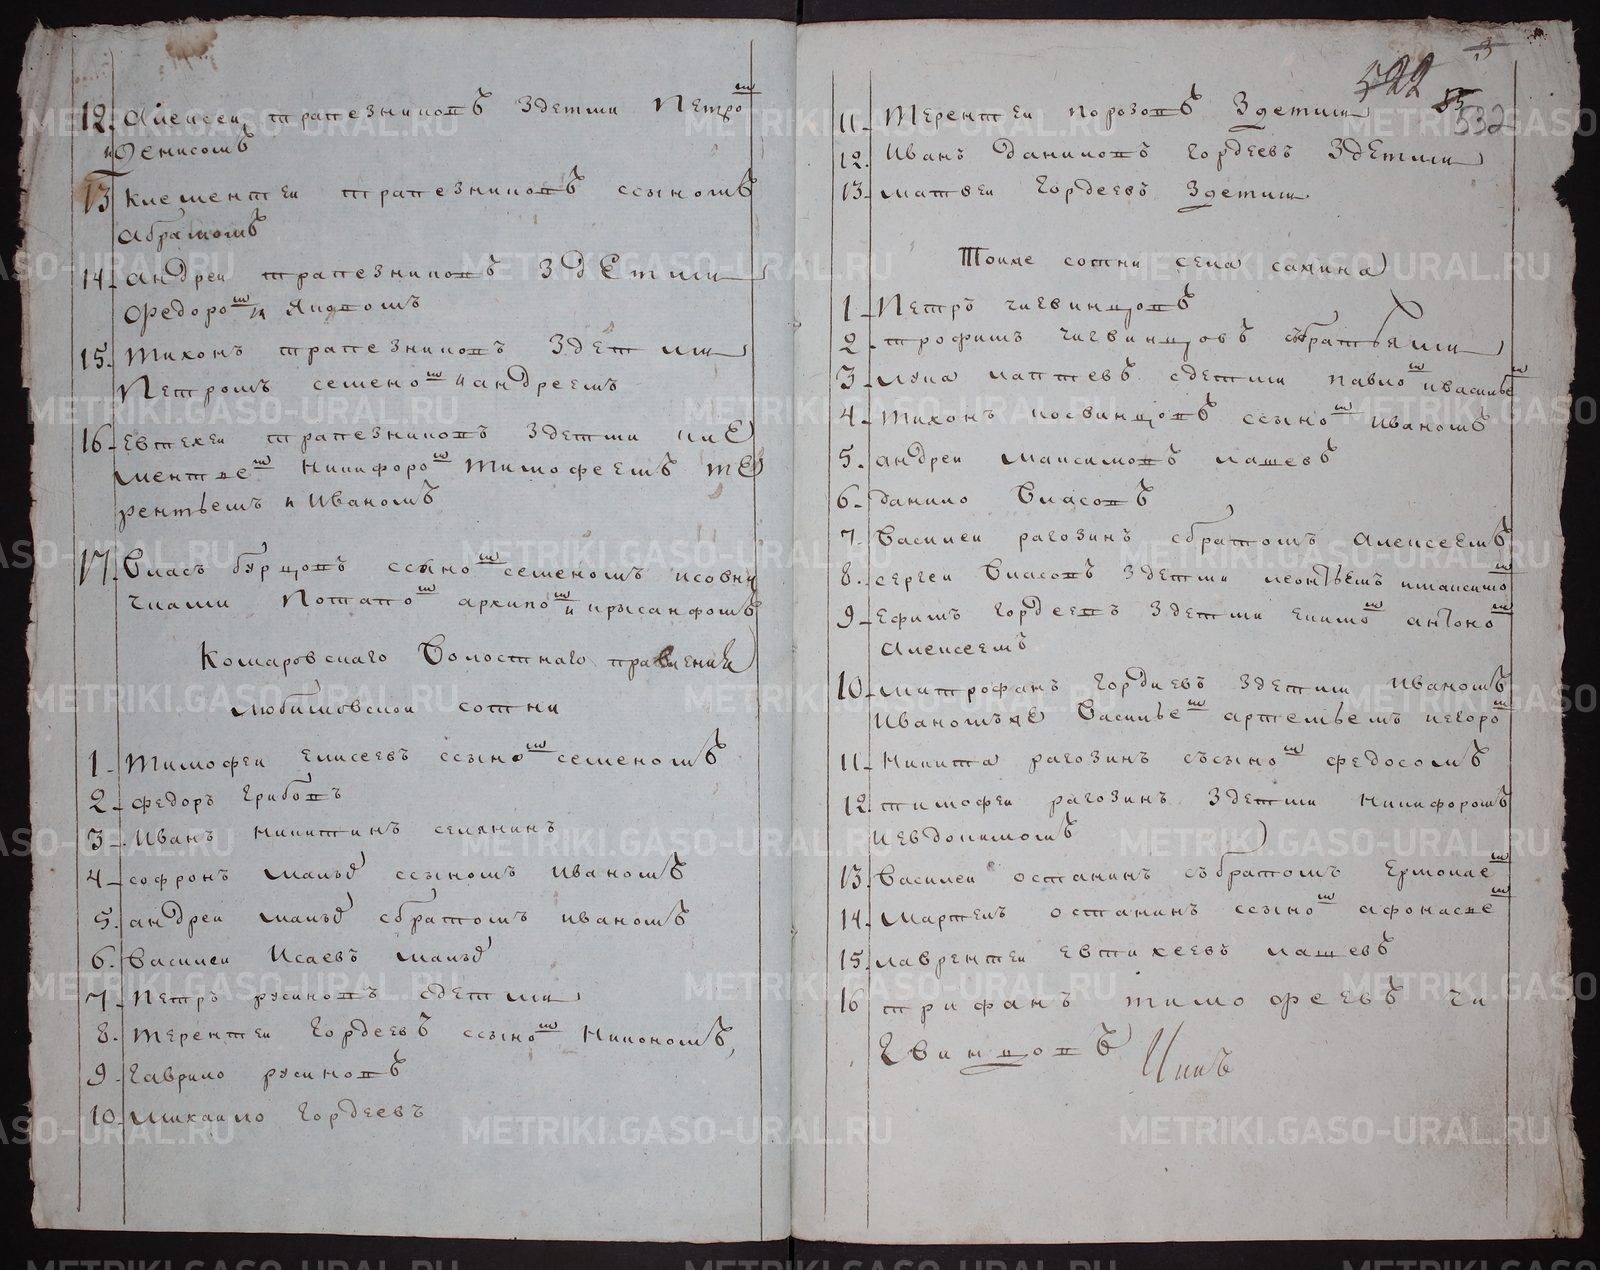 12. Алексеи трапезниковъ здетми Петро м
и Денисомъ
13 Клементеи трапезниковъ ссыномъ
Абрамомъ
14. андреи трапезниковъ здетми
Федоро м и Яковомъ
15. тихонъ трапезниковъ здетми
Петромъ семено м и андреемъ
16. евтехеи трапезниковъ здетми кле
ментье м Никифоро м тимофеемъ те
рентьемъ и Иваномъ
17. Власъ бурцовъ ссыно м семеномъ исовну
чками Потапо м архипо м и крысанфомъ
Комаровскаго Волостнаго правления
любимовскои сотни
1. тимофеи елисеевъ ссыно м семеномъ
2. федоръ грибовъ
3. Иванъ никитинъ селянинъ
4. софронъ малыд ссыномъ иваномъ
5. андреи малыд сбратомъ иваномъ
6. Василеи Исаевъ малыд
7. Петръ русиновъ сдетми
8. терентеи гордеевъ ссыно м Никономъ,
9. гаврило русиновъ
10. михаило гордеевъ
522
532
11. терентеи порозовъ здетми
12. Иванъ даниловъ гордеевъ здетми
13. матвеи гордеевъ здетми
Тоиже сотни села сажина
1. Петръ чигвинцовъ
2. трофимъ чигвинцовъ сбратьями
3. лука лаптевъ сдетми павло м ивасилье м
4. тихонъ посвинцовъ ссыно м иваномъ
5. андреи максимовъ пашевъ
6. данило Власовъ
7. Василеи рагозинъ сбратомъ алексеемъ
8. сергеи Власовъ здетми леонтьемъ имаксимо м
9. Ефимъ гордеевъ здетми екимо м антоно м
алексеемъ
10. митрофанъ гордиевъ здетми иваномъ
иваномъже Василье м артемьемъ иегоро м
11. Никита рагозинъ съсыно м федосомъ
12. тимофеи рагозинъ здетми никифоромъ
иевдокимомъ
13. Василеи останинъ събратомъ Ермолае м
14. Мартенъ останинъ ссыно м афонасье м
15. лаврентеи евтихеевъ пашевъ
16 трифанъ тимофеевъ чи
гвинцовъ